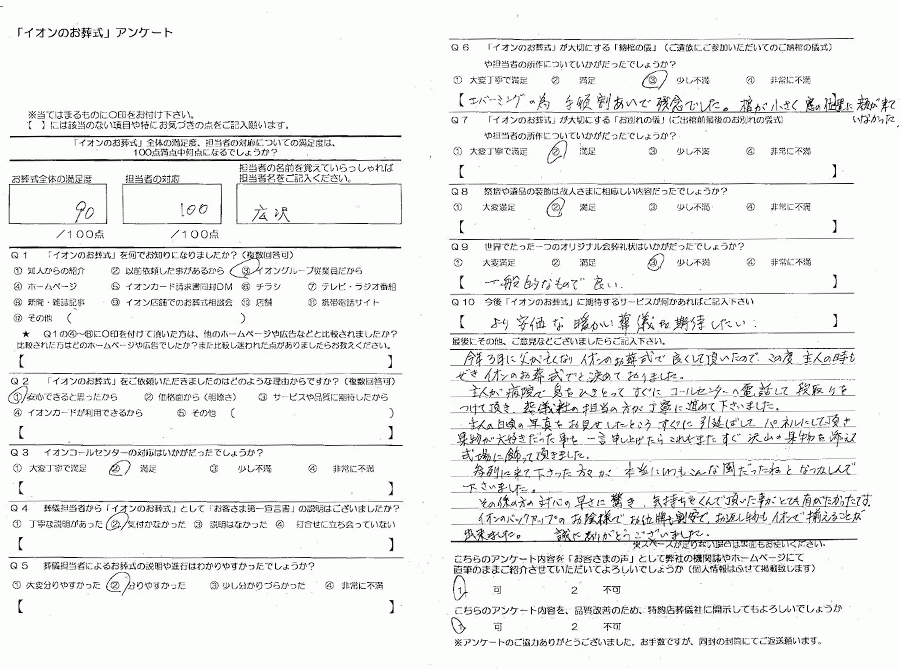 「イオンのお葬式」アンケート
※当てはまるものに○印をお付け下さい。
【 】には該当のない項目や特にお気づきの点をご記入願います。
「イオンのお葬式」全体の満足度、担当者の対応についての満足度は、
100点満点中何点になるでしょうか?
お葬式全体の満足度 担当者の対応 担当者の名前を覚えていらっしゃれば
担当者名をご記入ください。
90 100 広沢
/100点 /100点
Q1 「イオンのお葬式」を何でお知りになりましたか?(複数回答可)
① 知人からの紹介 ② 以前依頼した事があるから ③ イオングループ従業員だから
④ ホームページ ⑤ イオンカード請求書同封DM ⑥ チラシ ⑦ テレビ・ラジオ番組
⑧ 新聞・雑誌記事 ⑨ イオン店舗でのお葬式相談会 ⑩ 店舗 ⑪ 携帯電話サイト
⑫ その他 ( )
★ Q1の④~⑫に○印を付けて頂いた方は、他のホームページや広告などと比較されましたか?
比較された方はどのホームページや広告でしたか?また比較し迷われた点がありましたらお教えください。
【 】
Q2 「イオンのお葬式」をご依頼いただきましたのはどのような理由からですか?(複数回答可)
① 安心できると思ったから ② 価格面から(明朗さ) ③ サービスや品質に期待したから
④ イオンカードが利用できるから ⑤ その他 ( )
【 】
Q3 イオンコールセンターの対応はいかがだったでしょうか?
① 大変丁寧で満足 ② 満足 ③ 少し不満 ④ 非常に不満
【 】
Q4 葬儀担当者から「イオンのお葬式」として「お客さま第一宣言書」の説明はございましたか?
① 丁寧な説明があった ② 気付かなかった ③ 説明はなかった ④ 打合せに立ち会っていない
【 】
Q5 葬儀担当者によるお葬式の説明や進行はわかりやすかったでしょうか?
① 大変分りやすかった ② 分りやすかった ③ 少し分かりづらかった ④ 非常に不満
【 】
Q6 「イオンのお葬式」が大切にする「納棺の儀」(ご遺族にご参加いただいてのご納棺の儀式)
や担当者の所作についていかがだったでしょうか?
① 大変丁寧で満足 ② 満足 ③ 少し不満 ④ 非常に不満
【 エバーミングの為 手順割あいで残念でした。棺が小さく 窓の位置に顔が来て
いなかった 】
Q7 「イオンのお葬式」が大切にする「お別れの儀」(ご出棺前最後のお別れの儀式)
や担当者の所作についていかがだったでしょうか?
① 大変丁寧で満足 ② 満足 ③ 少し不満 ④ 非常に不満
【 】
Q8 祭壇や遺品の装飾は故人さまに相応しい内容だったでしょうか?
① 大変満足 ② 満足 ③ 少し不満 ④ 非常に不満
【 】
Q9 世界でたった一つのオリジナル会葬礼状はいかがだったでしょうか?
① 大変満足 ② 満足 ③ 少し不満 ④ 非常に不満
【 一般的なもので良い 】
Q10 今後「イオンのお葬式」に期待するサービスが何かあればご記入下さい
【 より安価な暖かい葬儀を期待したい. 】
最後にその他、ご意見などございましたらご記入下さい。
今年3月に父が亡くなり イオンのお葬式で良くして頂いたので、この度 主人の時も
ぜひ イオンのお葬式でと決めておりました。
主人が病院で息をひきとって すぐに コールセンターへ電話して段取りを
つけて頂き 葬儀社の担当の方が丁寧に進めて下さいました。
主人の自慢の写真をお見せしたところ すぐに引延ばして パネルにして頂き
果物が大好きだった事を一言申し上げたら これもまたすぐ沢山の果物を添えて
式場に飾って頂きました。
参列に来て下さった方が 本当にいつもこんな風だったねと なつかしんで
下さいました。
その後の方の対応の早さに驚き 気持ちをくんで頂いた事がとても有がたかったです。
イオンのバックアップのお陰様で お位牌も割安で、お返し物もイオンで揃えることが
出来ました。 誠にありがとうございました。
※スペースが足りない場合は裏面もお使いください。
こちらのアンケート内容を「お客さまの声」として弊社の機関誌やホームページにて
直筆のままご紹介させていただいてよろしいでしょうか(個人情報はふせて掲載致します)
1 可 2 不可
こちらのアンケート内容を、品質改善のため、特約店葬儀社に開示してもよろしいでしょうか
1 可 2 不可
※アンケートのご協力ありがとうございました。お手数ですが、同封の封筒にてご返送願います。